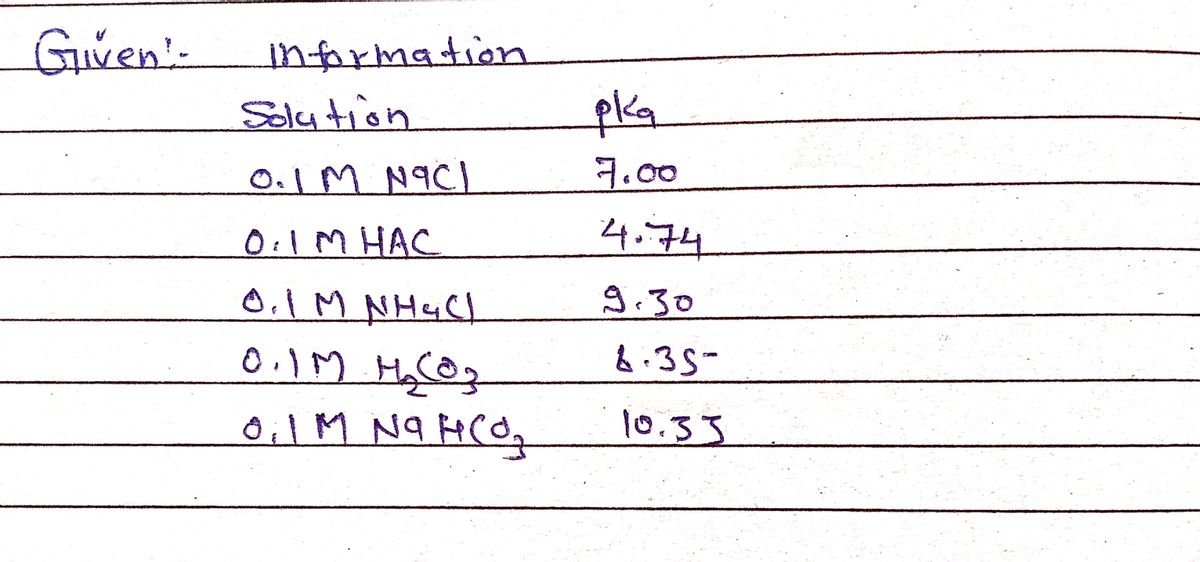 Given:- information
Solution pka
0.1 M NaCl 7.00
0.1 M HAC 4.74
0.1 M NH4Cl 9.30
0.1 M H2CO3 6.35
0.1 M NaHCO3 10.33